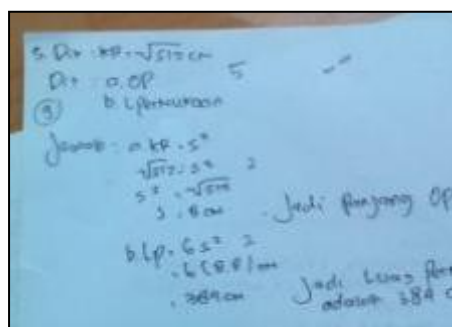 3. Dik : KP = √512 cm
Dit : a. OP 5
b. Lpermukaan
③
Jawab : a. KP = s²
√512 = s² 2
s² = √512
s = 8 cm . Jadi panjang OP
b. Lp = 6 s² 2
= 6 (8.8) cm
= 384 cm Jadi Luas
adalah 384 c